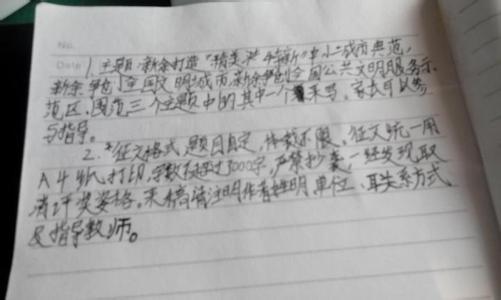 No.
Date 1. 主题:新余打造"精美 特新"中小城市典范,
新余争创全国文明城市,新余争创全国公共文明服务示
范区,围绕三个主题中的其中一个来写,家长可以参
与指导。
2. *征文格式,题目自定,体裁不限,征文统一用
A4纸打印,字数不超过3000字,严禁抄袭一经发现取
消评奖资格。来稿请注明作者姓明单位、联系方式、
及指导教师。